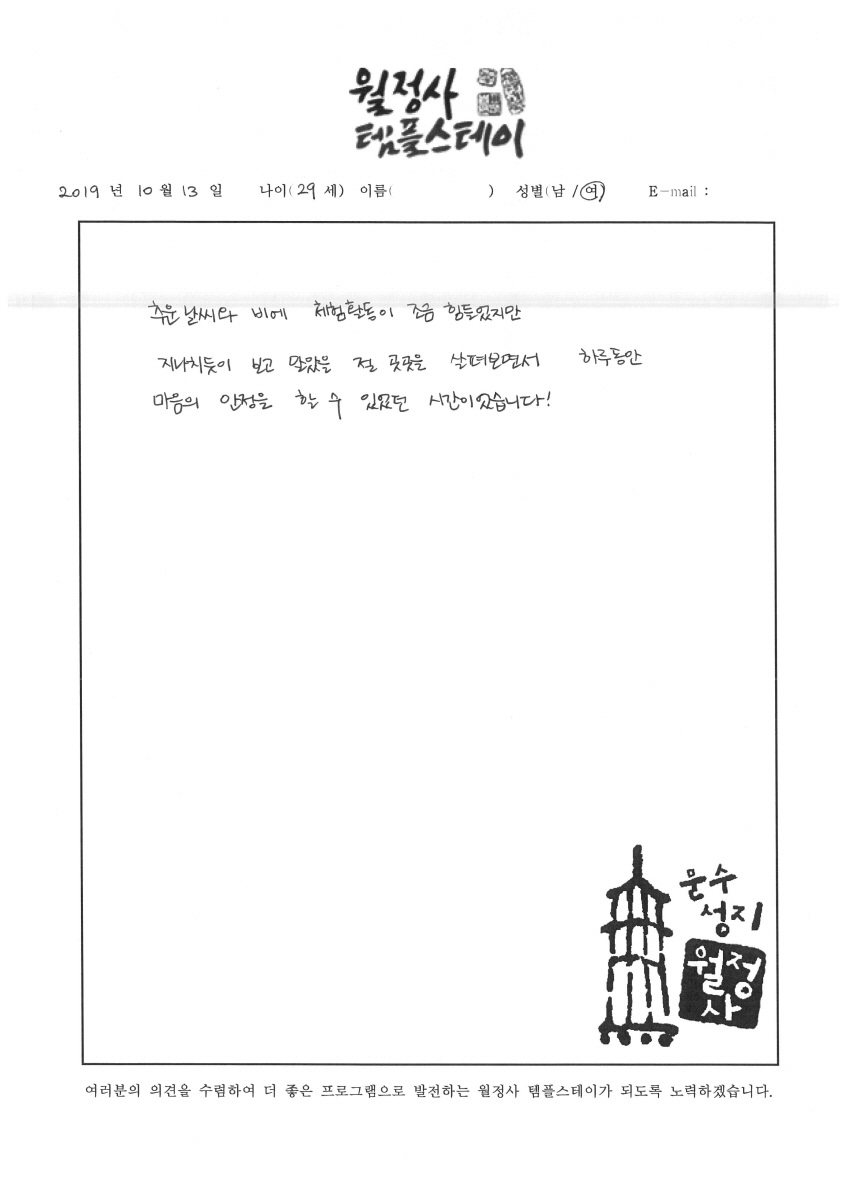 월정사
템플스테이
2019 년 10 월 13 일 나이( 29 세) 이름( ) 성별(남 / 여) E-mail :
추운 날씨와 비에 체험활동이 조금 힘들었지만
지나치듯이 보고 말았을 절 곳곳을 살펴보면서 하루동안
마음의 안정을 할 수 있었던 시간이었습니다!
문수
성지
월정
사
여러분의 의견을 수렴하여 더 좋은 프로그램으로 발전하는 월정사 템플스테이가 되도록 노력하겠습니다.